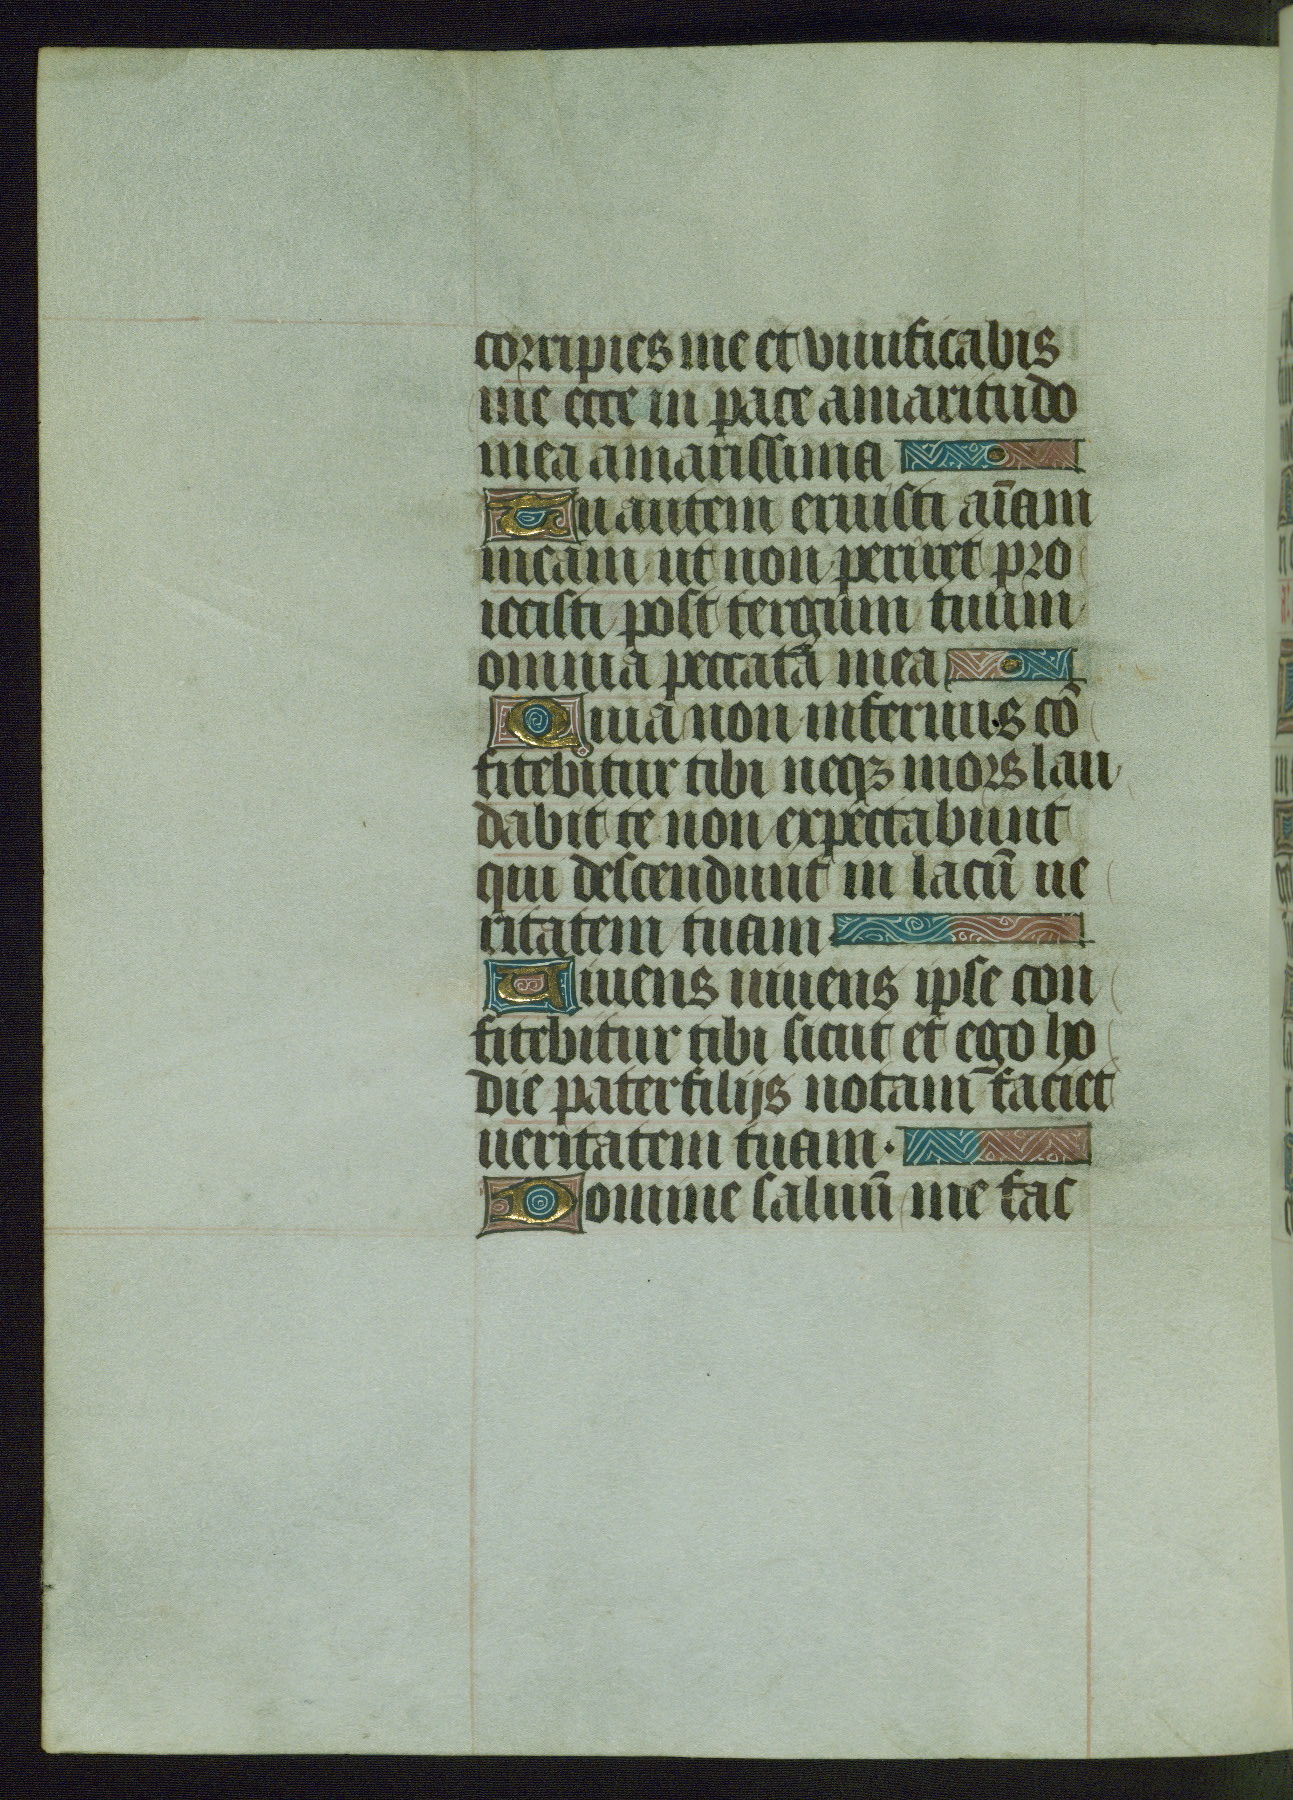 corripies me et viuificabis
me ecce in pace amaritudo
mea amarissima
Tu autem eruisti aīam
meam ut non periret pro
iecisti post tergum tuum
omnia peccata mea
Quia non infernus cō
fitebitur tibi neqꝫ mors lau
dabit te non expectabunt
qui descendunt in lacū ue
ritatem tuam
Uiuens uiuens ipse con
fitebitur tibi sicut et ego ho
die pater filijs notam faciet
ueritatem tuam.
Domine saluū me fac